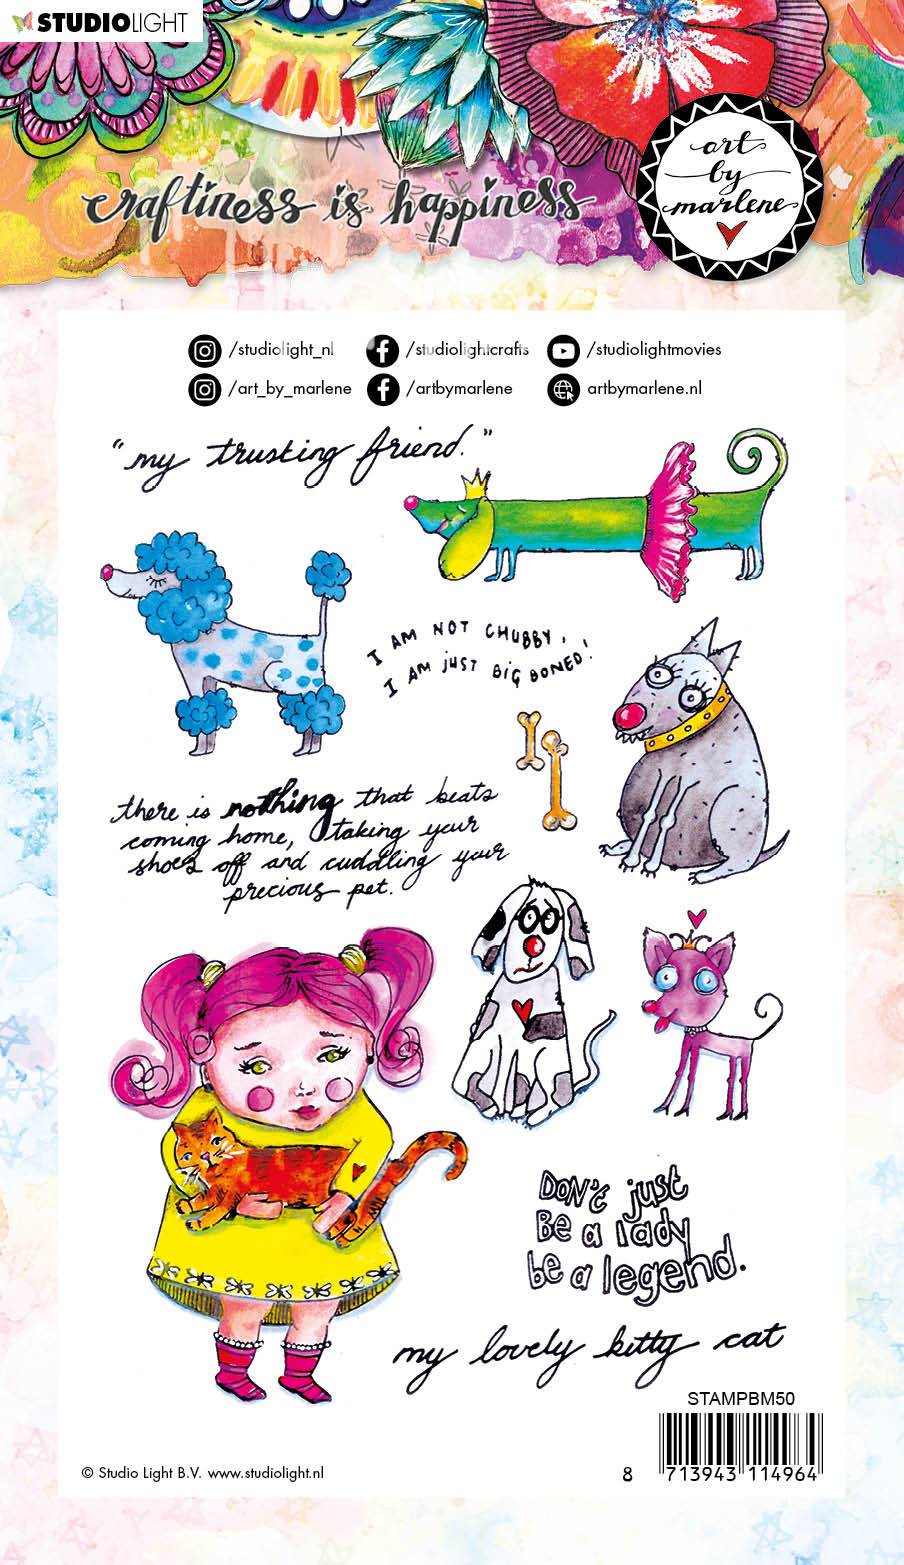 STUDIOLIGHT
craftiness is happiness
art
by
marlene
/studiolight_nl /studiolightcrafts /studiolightmovies
/art_by_marlene /artbymarlene artbymarlene.nl
"my trusting friend."
I AM NOT CHUBBY,
I AM just BIG BONED!
there is nothing that beats
coming home, taking your
shoes off and cuddling your
precious pet.
DON't just
Be a lady
be a legend.
my lovely kitty cat
STAMPBM50
© Studio Light B.V. www.studiolight.nl
8 713943 114964